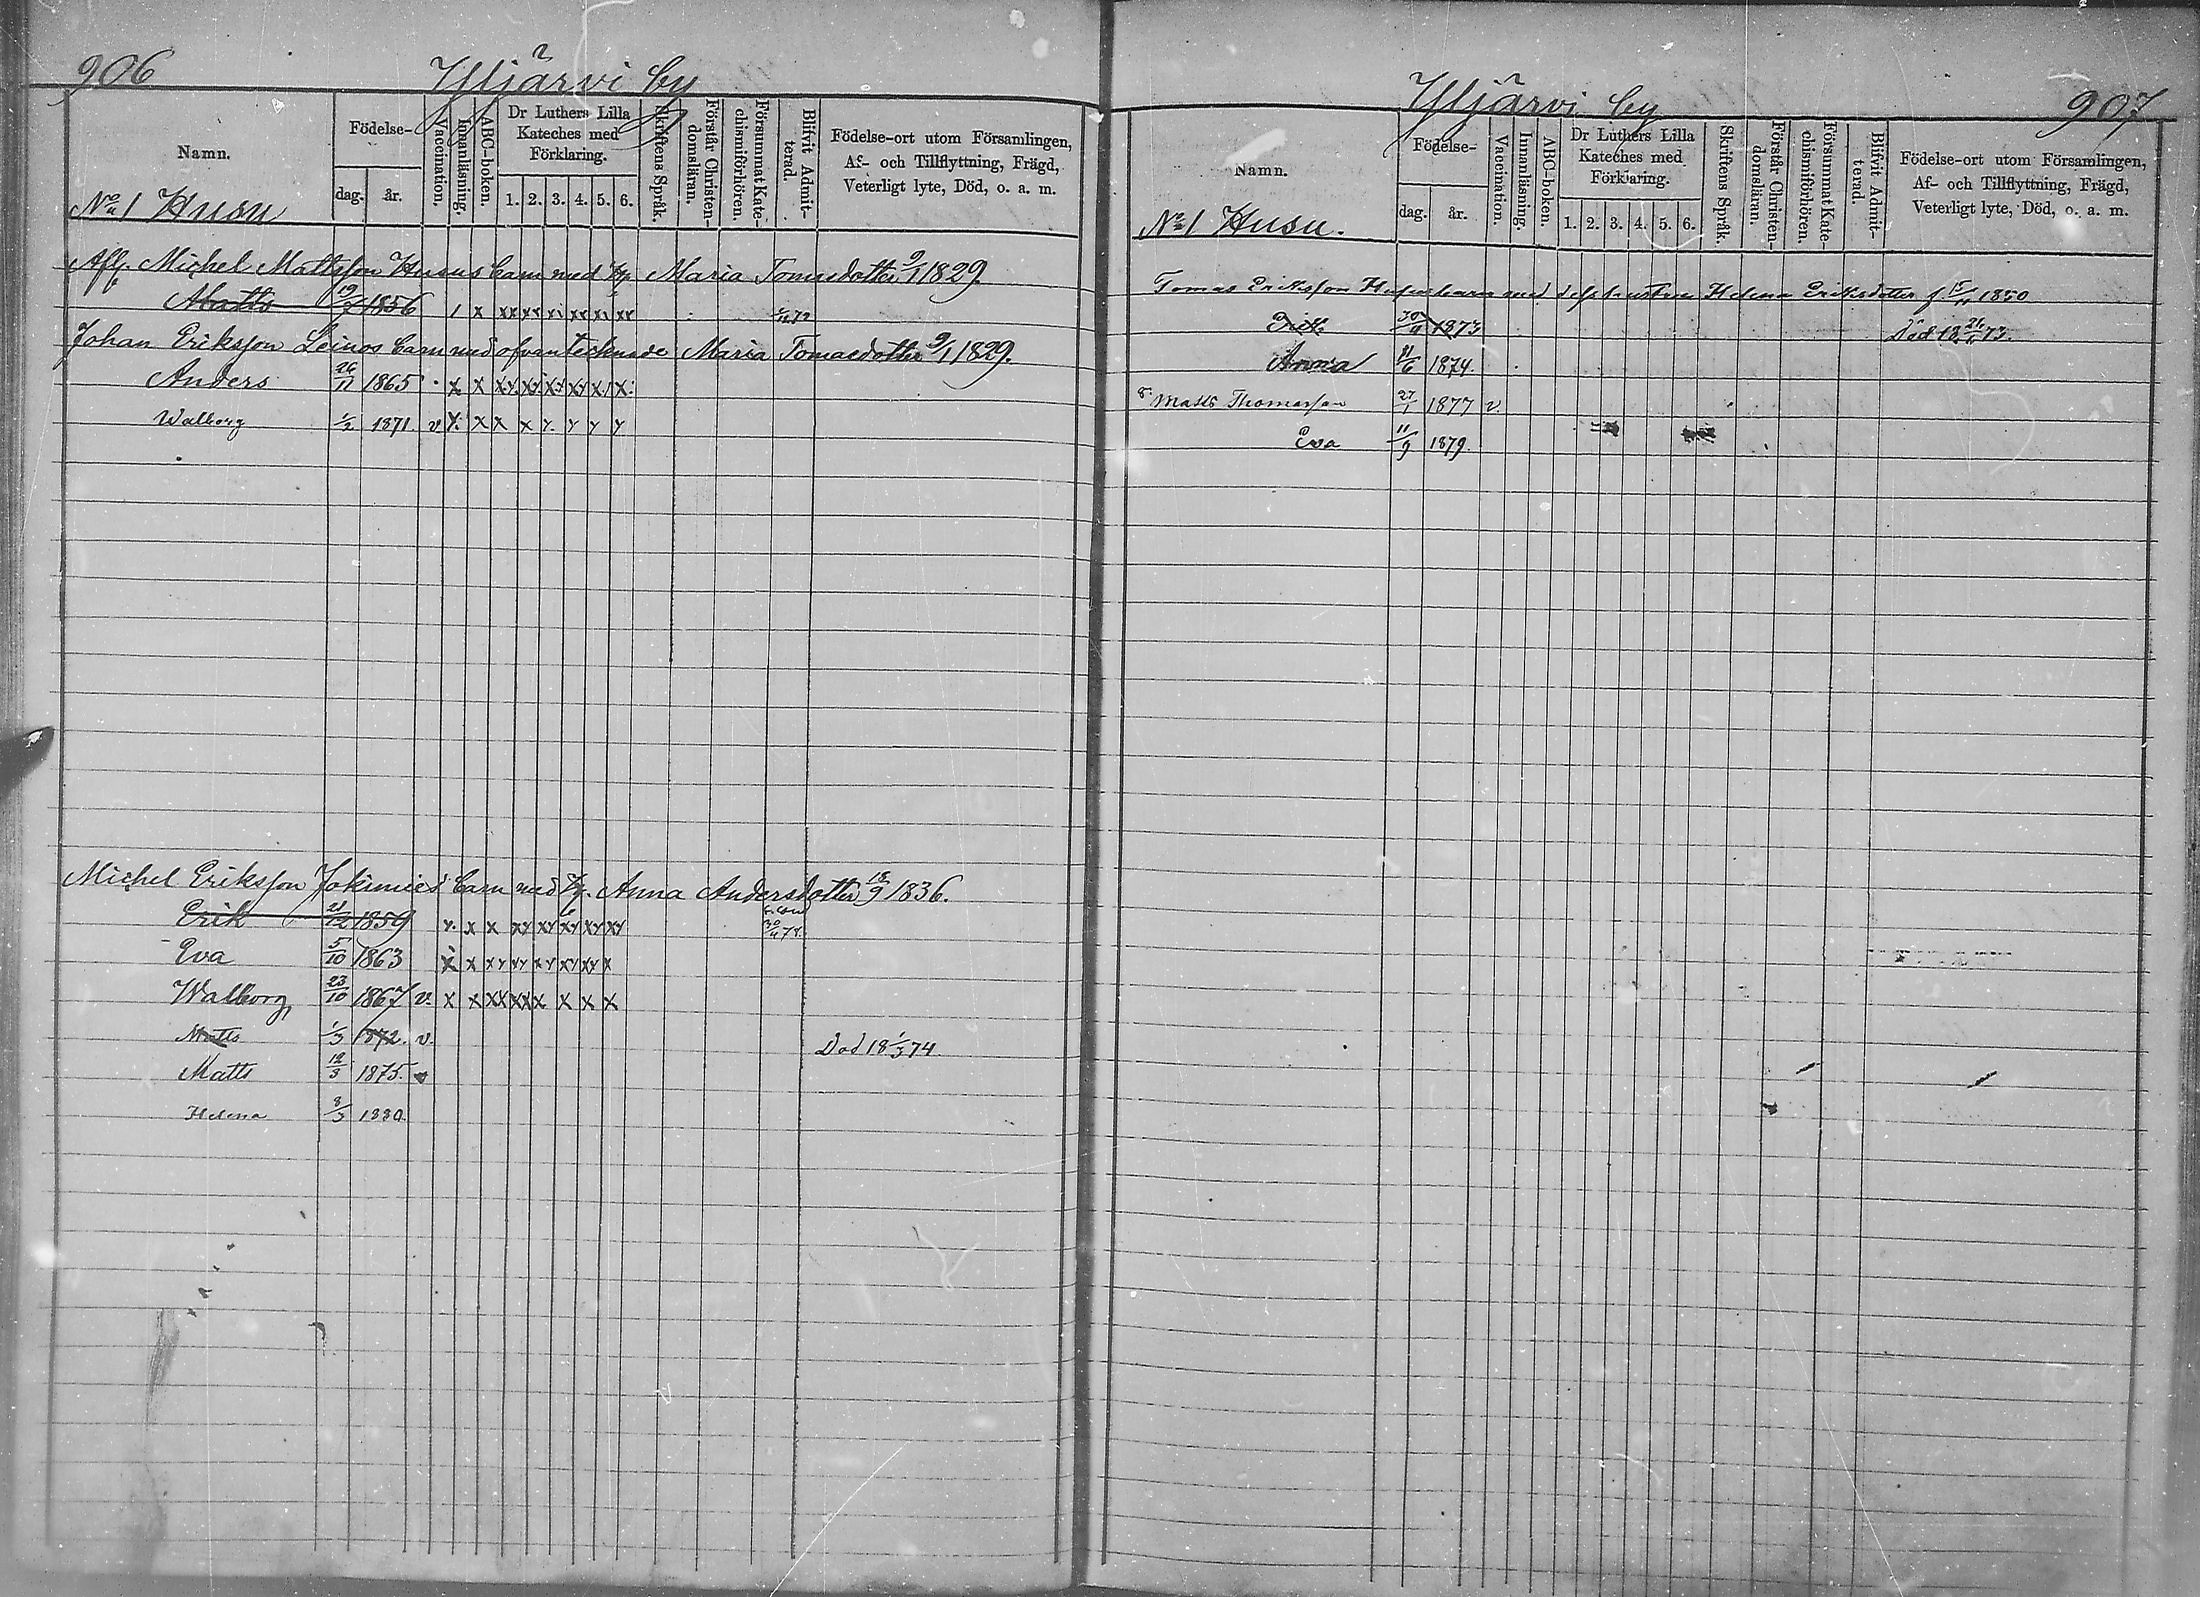 906
Yljärvi by
Namn.
Födelse-
dag.
år.
Vaccination.
Innanläsning.
ABC-boken.
Dr Luthers Lilla
Kateches med
Förklaring.
1. 2. 3. 4. 5. 6.
Skriftens Språk.
Förstår Christen-
domsläran.
Försummat Kate-
chismiförhören.
Blifvit Admit-
terad.
Födelse-ort utom Församlingen,
Af- och Tillflyttning, Frägd,
Veterligt lyte, Död, o. a. m.
No 1 Husu
Afl. Michel Mattsson Husus barn med Maria Tomasdotter 9/1 1829.
Matts 19/7 1856 x xx xx xx xx xx
Johan Eriksson Leinos barn med ofvantecknade Maria Tomasdotter 9/1 1829.
Anders 26/11 1865 x x
Walborg 1/2 1871 v. x x x
Michel Eriksson Jokimies barn med Anna Andersdotter 18/9 1836.
Erik 21/12 1859 x x xx xx xx xx xx
Eva 5/10 1863 x x
Walborg 23/10 1867 v. x x xx xx x x x x
Matts 1/3 1872. v. Död 18 1/3 74.
Matts 12/3 1875.
Helena 8/3 1880.
Yljärvi by
907
Namn.
Födelse-
dag.
år.
Vaccination.
Innanläsning.
ABC-boken.
Dr Luthers Lilla
Kateches med
Förklaring.
1. 2. 3. 4. 5. 6.
Skriftens Språk.
Förstår Christen-
domsläran.
Försummat Kate-
chismiförhören.
Blifvit Admit-
terad.
Födelse-ort utom Församlingen,
Af- och Tillflyttning, Frägd,
Veterligt lyte, Död, o. a. m.
No 1 Husu.
Tomas Eriksson Husus barn med dess hustru Helena Eriksdotter f. 1850
Erik 1873 Död 18 73.
Anna 1874.
Matts Thomasson 27/1 1877 v.
Eva 11/9 1879.